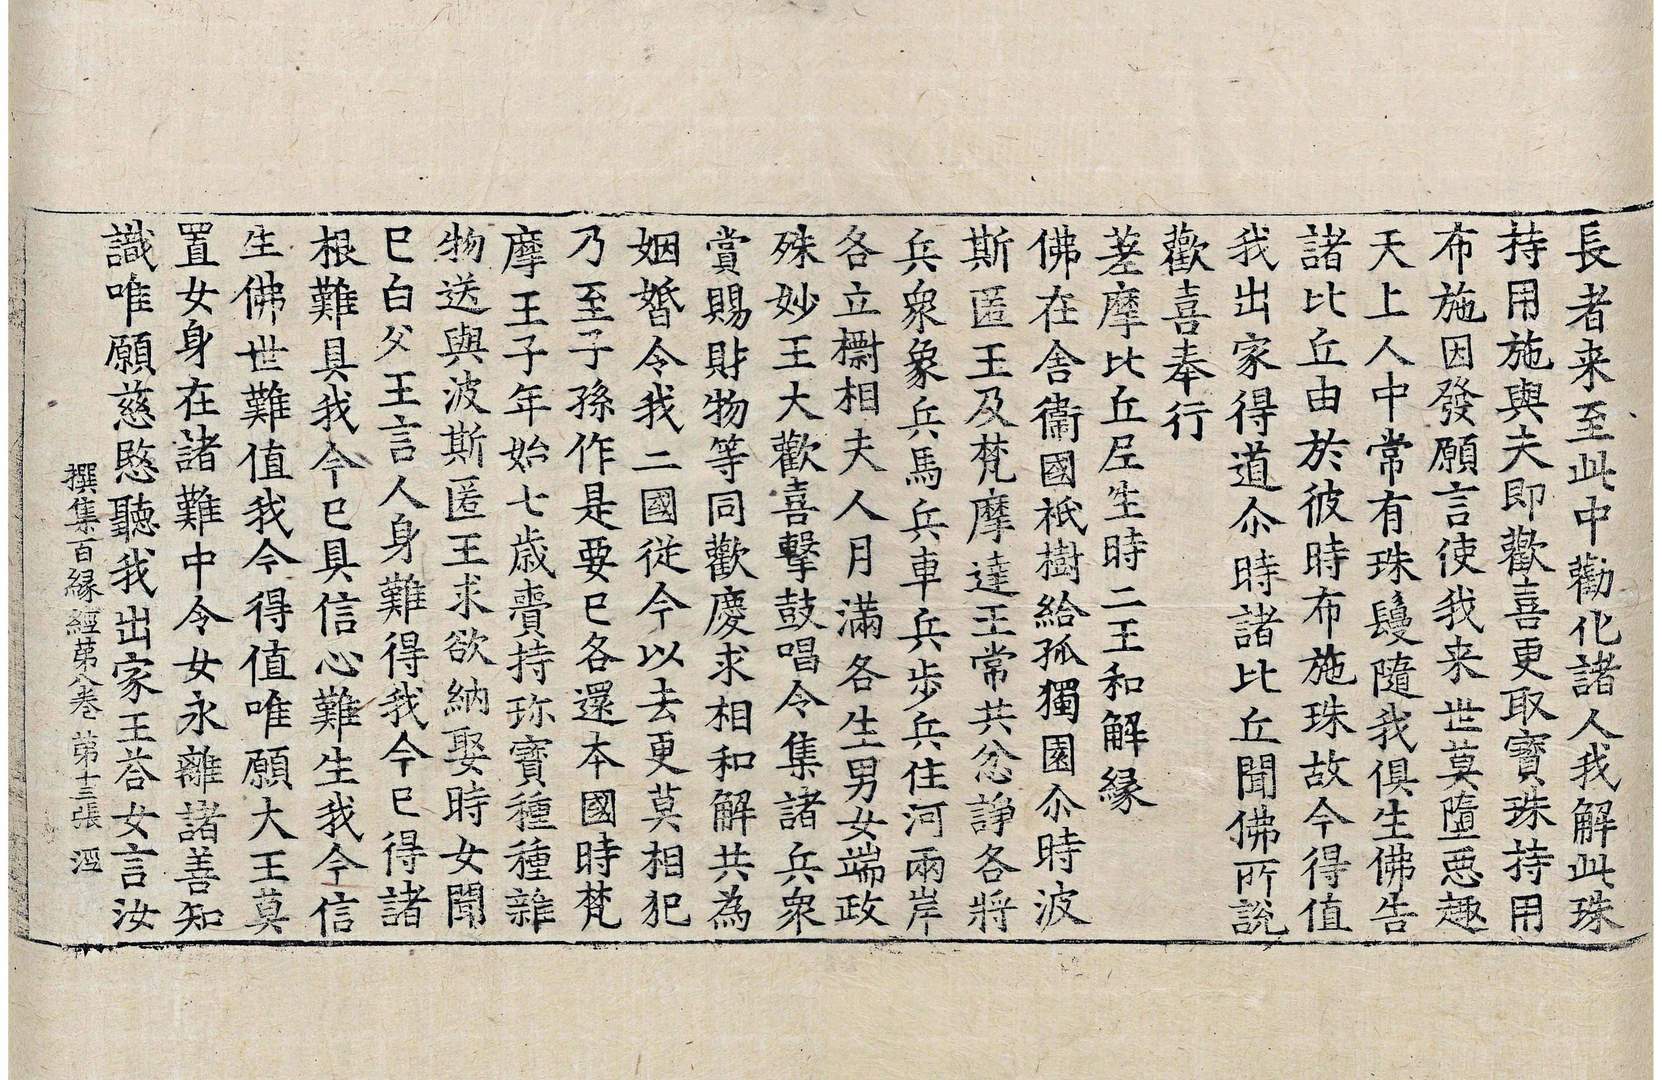 長者来至此中勸化諸人我解此珠
持用施與夫即歡喜更取寳珠持用
布施因發願言使我来世莫墮惡趣
天上人中常有珠鬘隨我俱生佛告
諸比丘由於彼時布施珠故今得值
我出家得道尒時諸比丘聞佛所說
歡喜奉行
差摩比丘尼生時二王和解緣
佛在舍衞國祇樹給孤獨園尒時波
斯匿王及梵摩達王常共忿諍各將
兵衆象兵馬兵車兵步兵住河兩岸
各立㯹相夫人月滿各生男女端政
殊妙王大歡喜擊鼓唱令集諸兵衆
賞賜財物等同歡慶求相和解共為
姻婚令我二國從今以去更莫相犯
乃至子孫作是要已各還本國時梵
摩王子年始七歲賷持珎寳種種雜
物送與波斯匿王求欲納娶時女聞
已白父王言人身難得我今已得諸
根難具我今已具信心難生我今信
生佛世難值我今得值唯願大王莫
置女身在諸難中令女永離諸善知
識唯願慈愍聽我出家王荅女言汝
撰集百緣經苐八卷 苐十三張 溼